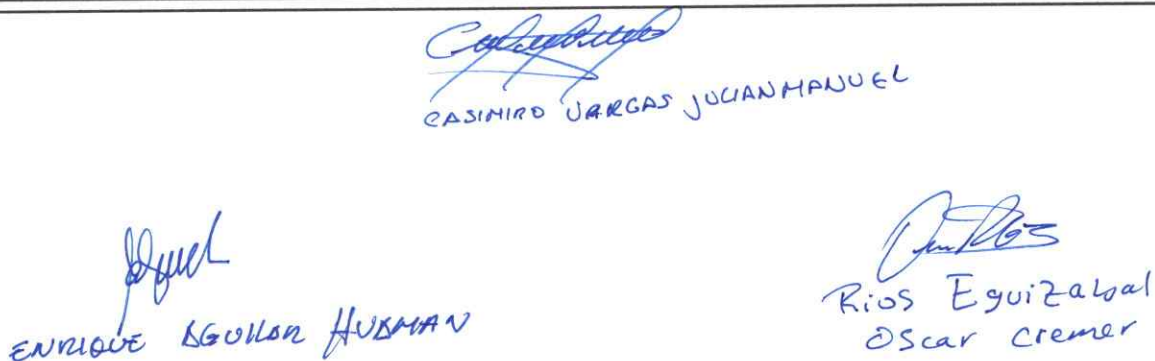 CASIMIRO VARGAS JULIAN MANUEL
ENRIQUE AGUILAR HUAMAN
Rios Eguizabal
Oscar Cremer